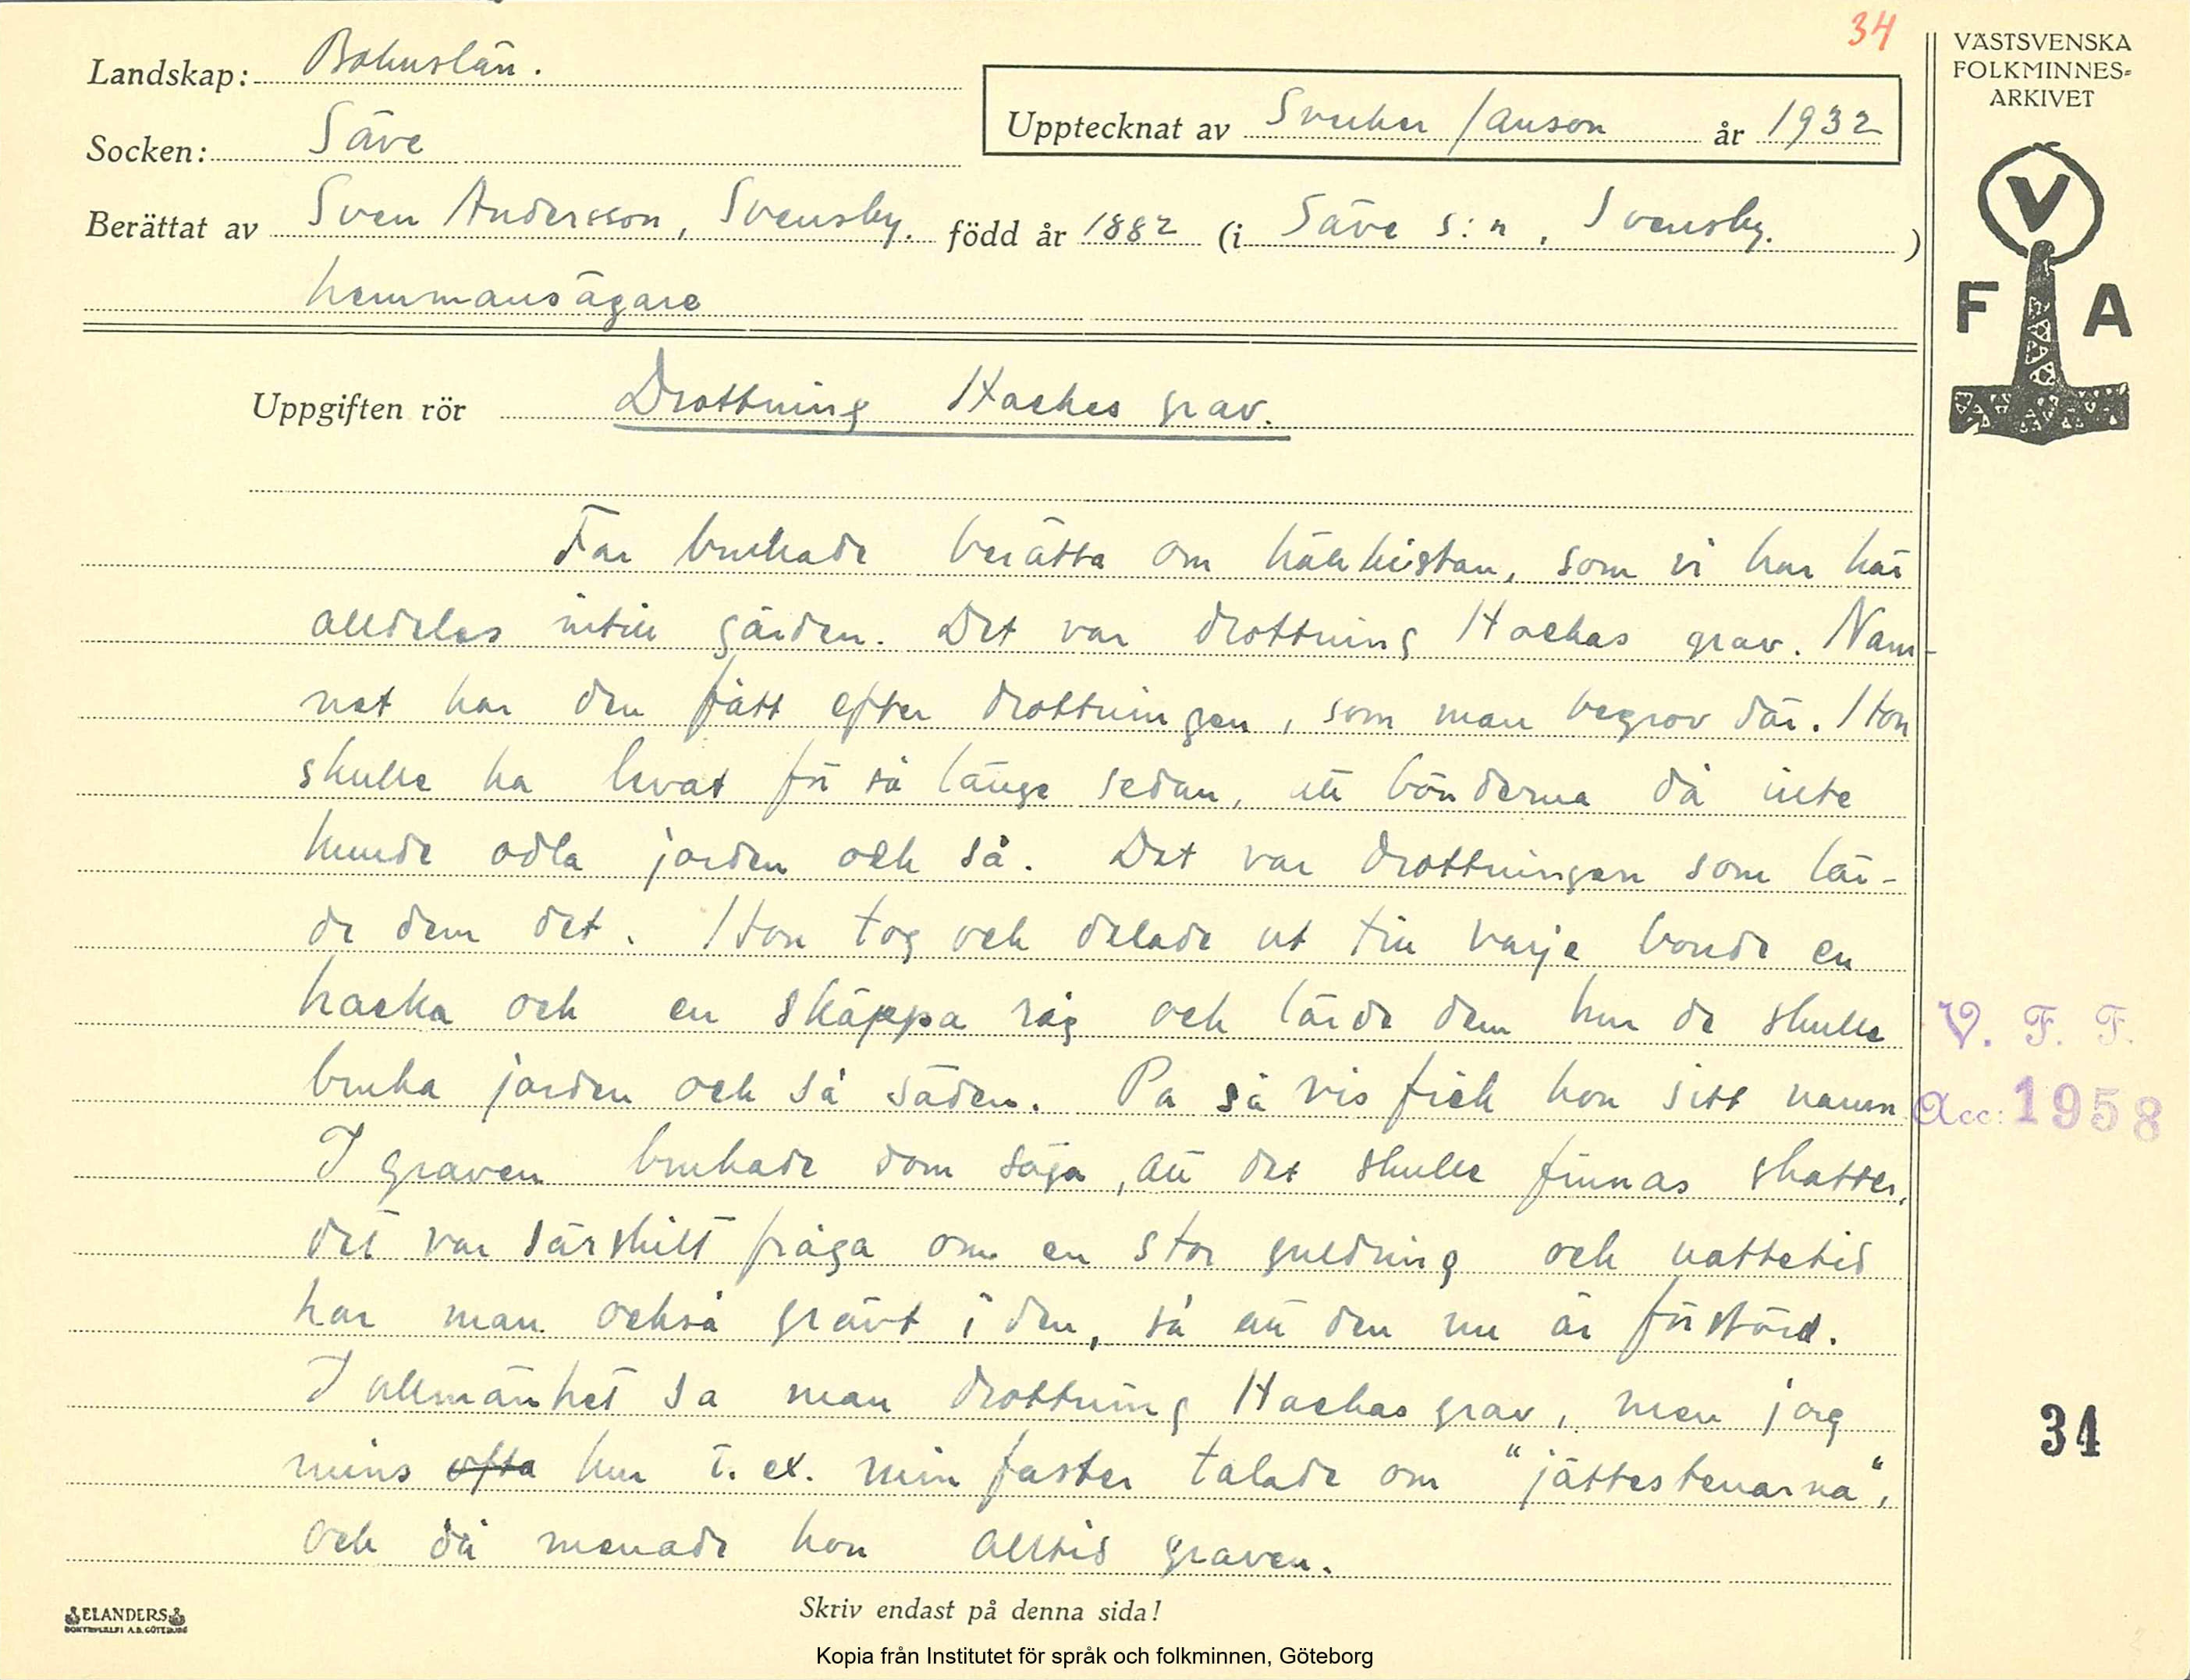 34
Landskap: Bohuslän.
VÄSTSVENSKA
FOLKMINNES=
ARKIVET
Socken: Säve
Upptecknat av Sverker Janson år 1932
Berättat av Sven Andersson, Svensby. född år 1882 (i Säve s:n, Svensby.)
hemmansägare
V
F A
Uppgiften rör Drottning Hackes grav.
Far brukade berätta om hällkistan, som vi har här
alldeles intill gården. Det var drottning Hackas grav. Nam-
net har den fått efter drottningen, som man begrov där. Hon
skulle ha levat för så länge sedan, att bönderna då inte
kunde odla jorden och så. Det var drottningen som lär-
de dem det. Hon tog och delade ut till varje bonde en
hacka och en skäppa råg och lärde dem hur de skulle
bruka jorden och så säden. Pa så vis fick hon sitt namn
I graven brukade dom säga, att det skulle finnas skatter,
det var särskilt fråga om en stor guldring och nattetid
har man också grävt i den, så att den nu är förstörd.
I allmänhet sa man drottning Hackas grav, men jag
mins ofta hur t. ex. min faster talade om "jättestenarna",
och då menade hon alltid graven.
V. F. F.
Acc: 1958
34
ELANDERS
BOKTRYCKERI A.B. GÖTEBORG
Skriv endast på denna sida!
Kopia från Institutet för språk och folkminnen, Göteborg